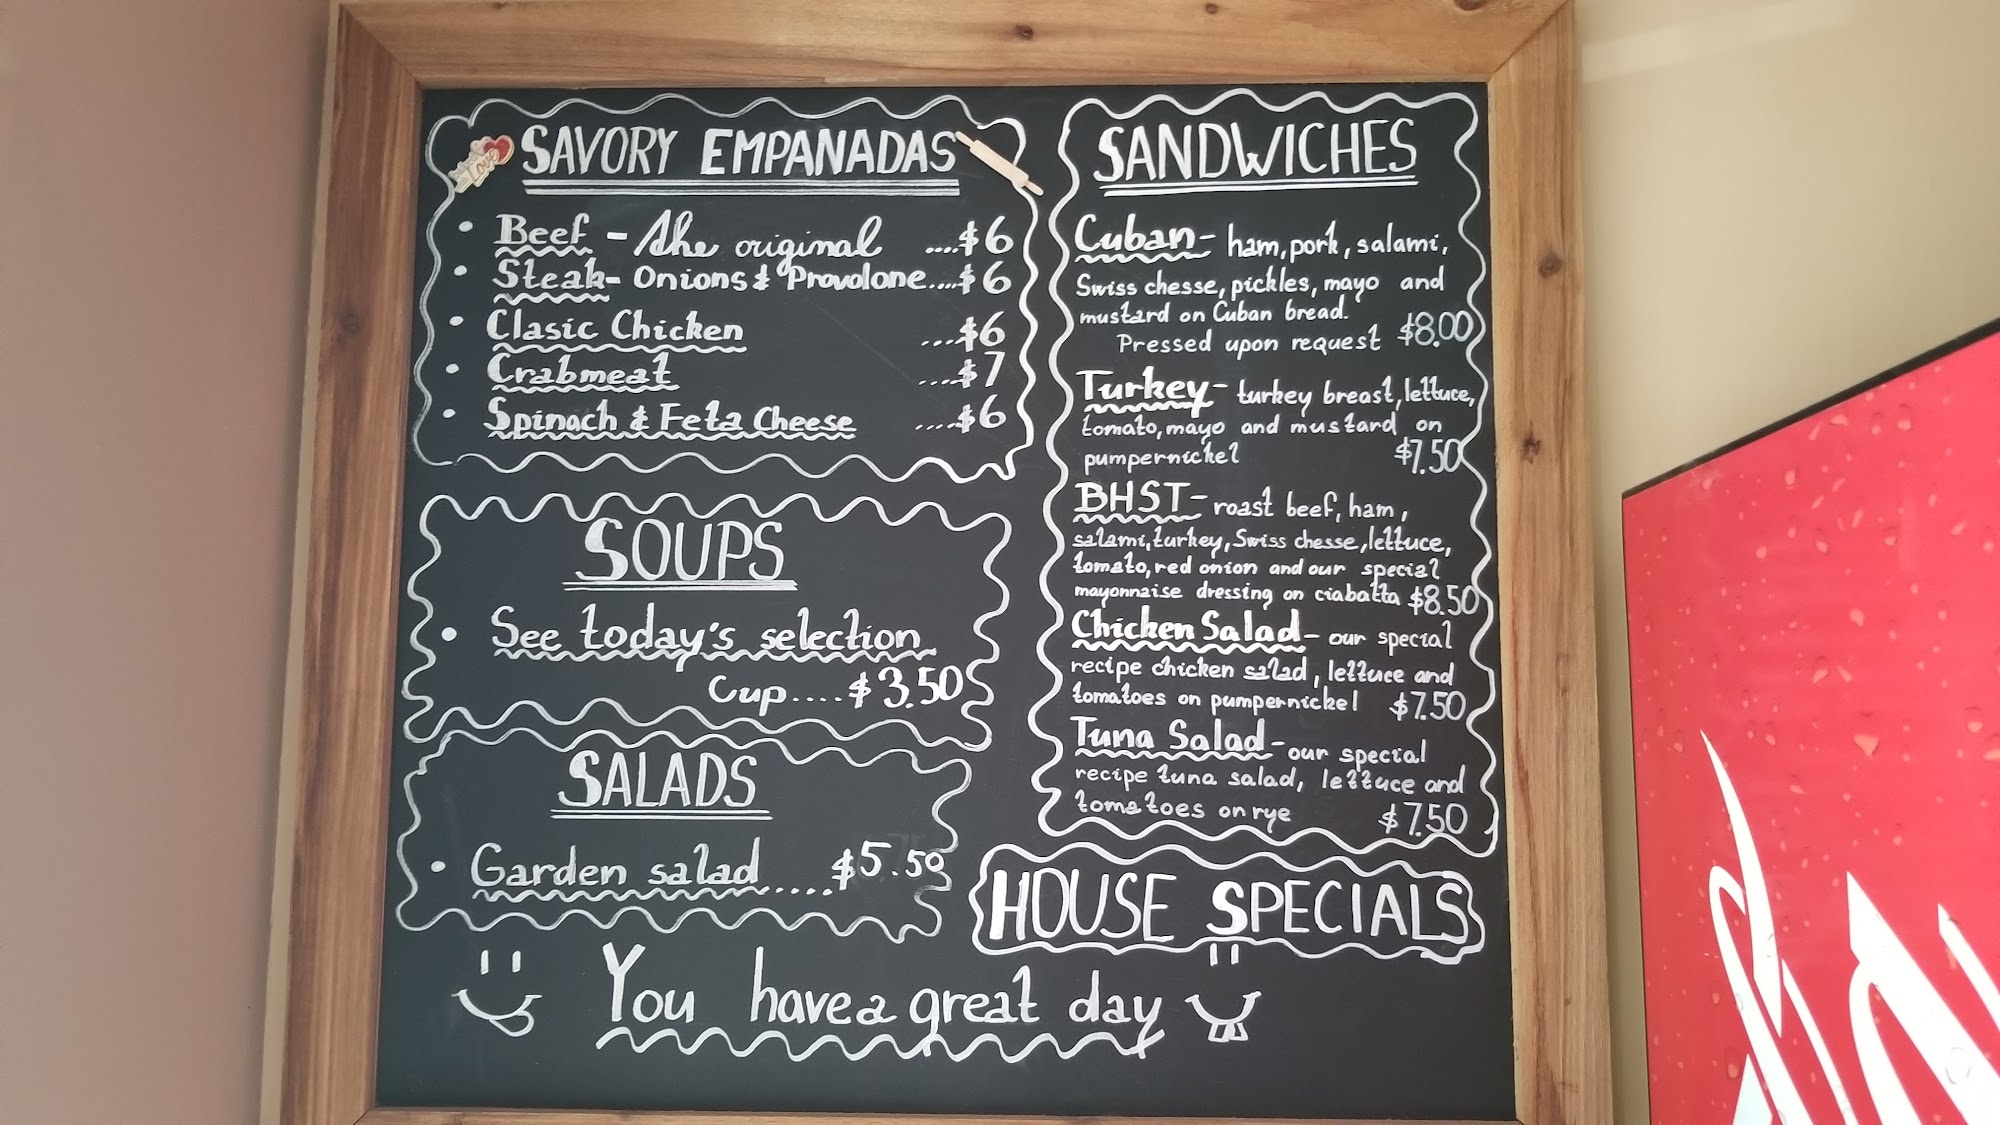 SAVORY EMPANADAS
• Beef - The original ....$6
• Steak- Onions & Provolone....$6
• Clasic Chicken ....$6
• Crabmeat ....$7
• Spinach & Feta Cheese ....$6
SOUPS
• See today's selection
Cup....$3.50
SALADS
• Garden salad.....$5.50
SANDWICHES
Cuban- ham, pork, salami,
Swiss chesse, pickles, mayo and
mustard on Cuban bread.
Pressed upon request $8.00
Turkey- turkey breast, lettuce,
tomato, mayo and mustard on
pumpernickel $7.50
BHST- roast beef, ham,
salami, turkey, Swiss chesse, lettuce,
tomato, red onion and our special
mayonnaise dressing on ciabatta $8.50
Chicken Salad- our special
recipe chicken salad, lettuce and
tomatoes on pumpernickel $7.50
Tuna Salad- our special
recipe tuna salad, lettuce and
tomatoes on rye $7.50
HOUSE SPECIALS
You have a great day